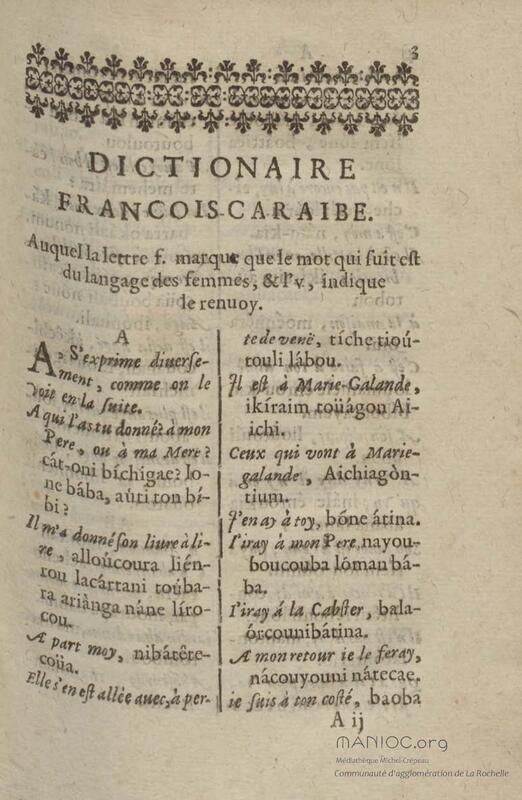 3
DICTIONAIRE
FRANCOIS-CARAIBE.
Auquel la lettre f. marque que le mot qui suit est
du langage des femmes, & l'v, indique
le renuoy.
A
A, S'exprime diuerse-
ment, comme on le
voit en la suite.
A qui l'as tu donné? à mon
Pere, ou à ma Mere?
cát-oni bíchigae? Io-
ne bába, aúti ton bí-
bi?
Il m'a donné son liure à li-
re, alloúcoura lién-
rou lacártani toúba-
ra ariânga náne líro-
cou.
A part moy, nibátête-
coüa.
Elle s'en est allée auec, à per-
te de venë, tíche tioú-
touli lábou.
Il est à Marie-Galande,
ikíraim toüágon Ai-
ichi.
Ceux qui vont à Marie-
galande, Aichiagòn-
tium.
J'en ay à toy, bóne átina.
I'iray à mon Pere, nayou-
boucouba lóman bá-
ba.
I'iray á la Cabster, bala-
órcounibátina.
A mon retour ie le feray,
nácouyouni nátecae.
ie suis à ton costé, baoba
A ij
MANIOC.org
Médiathèque Michel-Crépeau
Communauté d'agglomération de La Rochelle